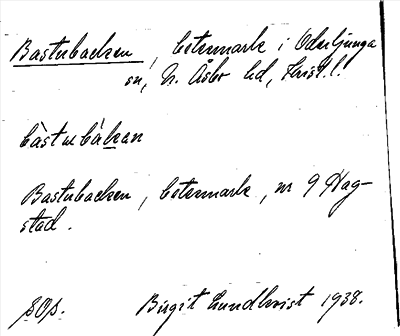 Bastubacken, betesmark i Oderljunga
sn, N. Åsbo hd, Krist. l.
bàstubàkan
Bastubacken, betesmark, nr 9 Hag-
stad.
Birgit Lundkvist 1938.